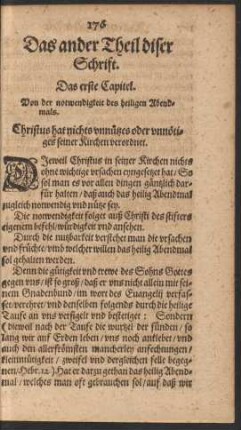 176
Das ander Theil diser
Schrifft.
Das erste Capitel.
Von der notwendigkeit des heiligen Abend-
mals.
Christus hat nichts vnnützes oder vnnöti-
ges seiner Kirchen verordnet.
DJeweil Christus in seiner Kirchen nichts
ohne wichtige vrsachen eyngesetzt hat / So
sol man es vor allen dingen gäntzlich dar-
für halten / daß auch das heilig Abendmal
zugleich notwendig vnd nütze sey.
Die notwendigkeit folget auß Christi des stifters
eigenem befehl / würdigkeit vnd ansehen.
Durch die nutzbarkeit verstehet man die vrsachen
vnd früchte / vmb welcher willen das heilig Abendmal
sol gehalten werden.
Denn die gütigkeit vnd trewe des Sohns Gottes
gegen vns / ist so groß / daß er vns nicht allein mit sei-
nem Gnadenbund / im wort des Euangelij verfas-
set verehret / vnd denselben folgends durch die heilige
Tauffe an vns versigelt vnd bestetiget : Sondern
( dieweil nach der Tauffe die wurtzel der sünden / so
lang wir auff Erden leben / vns noch anklebet / vnd
auch den allerfrömsten mancherley anfechtungen /
kleinmütigkeit / zweifel vnd dergleichen felle begeg-
nen / Hebr. 12.) Hat er darzu gethan das heilig Abend-
mal / welches man oft gebrauchen sol / auf daß wir